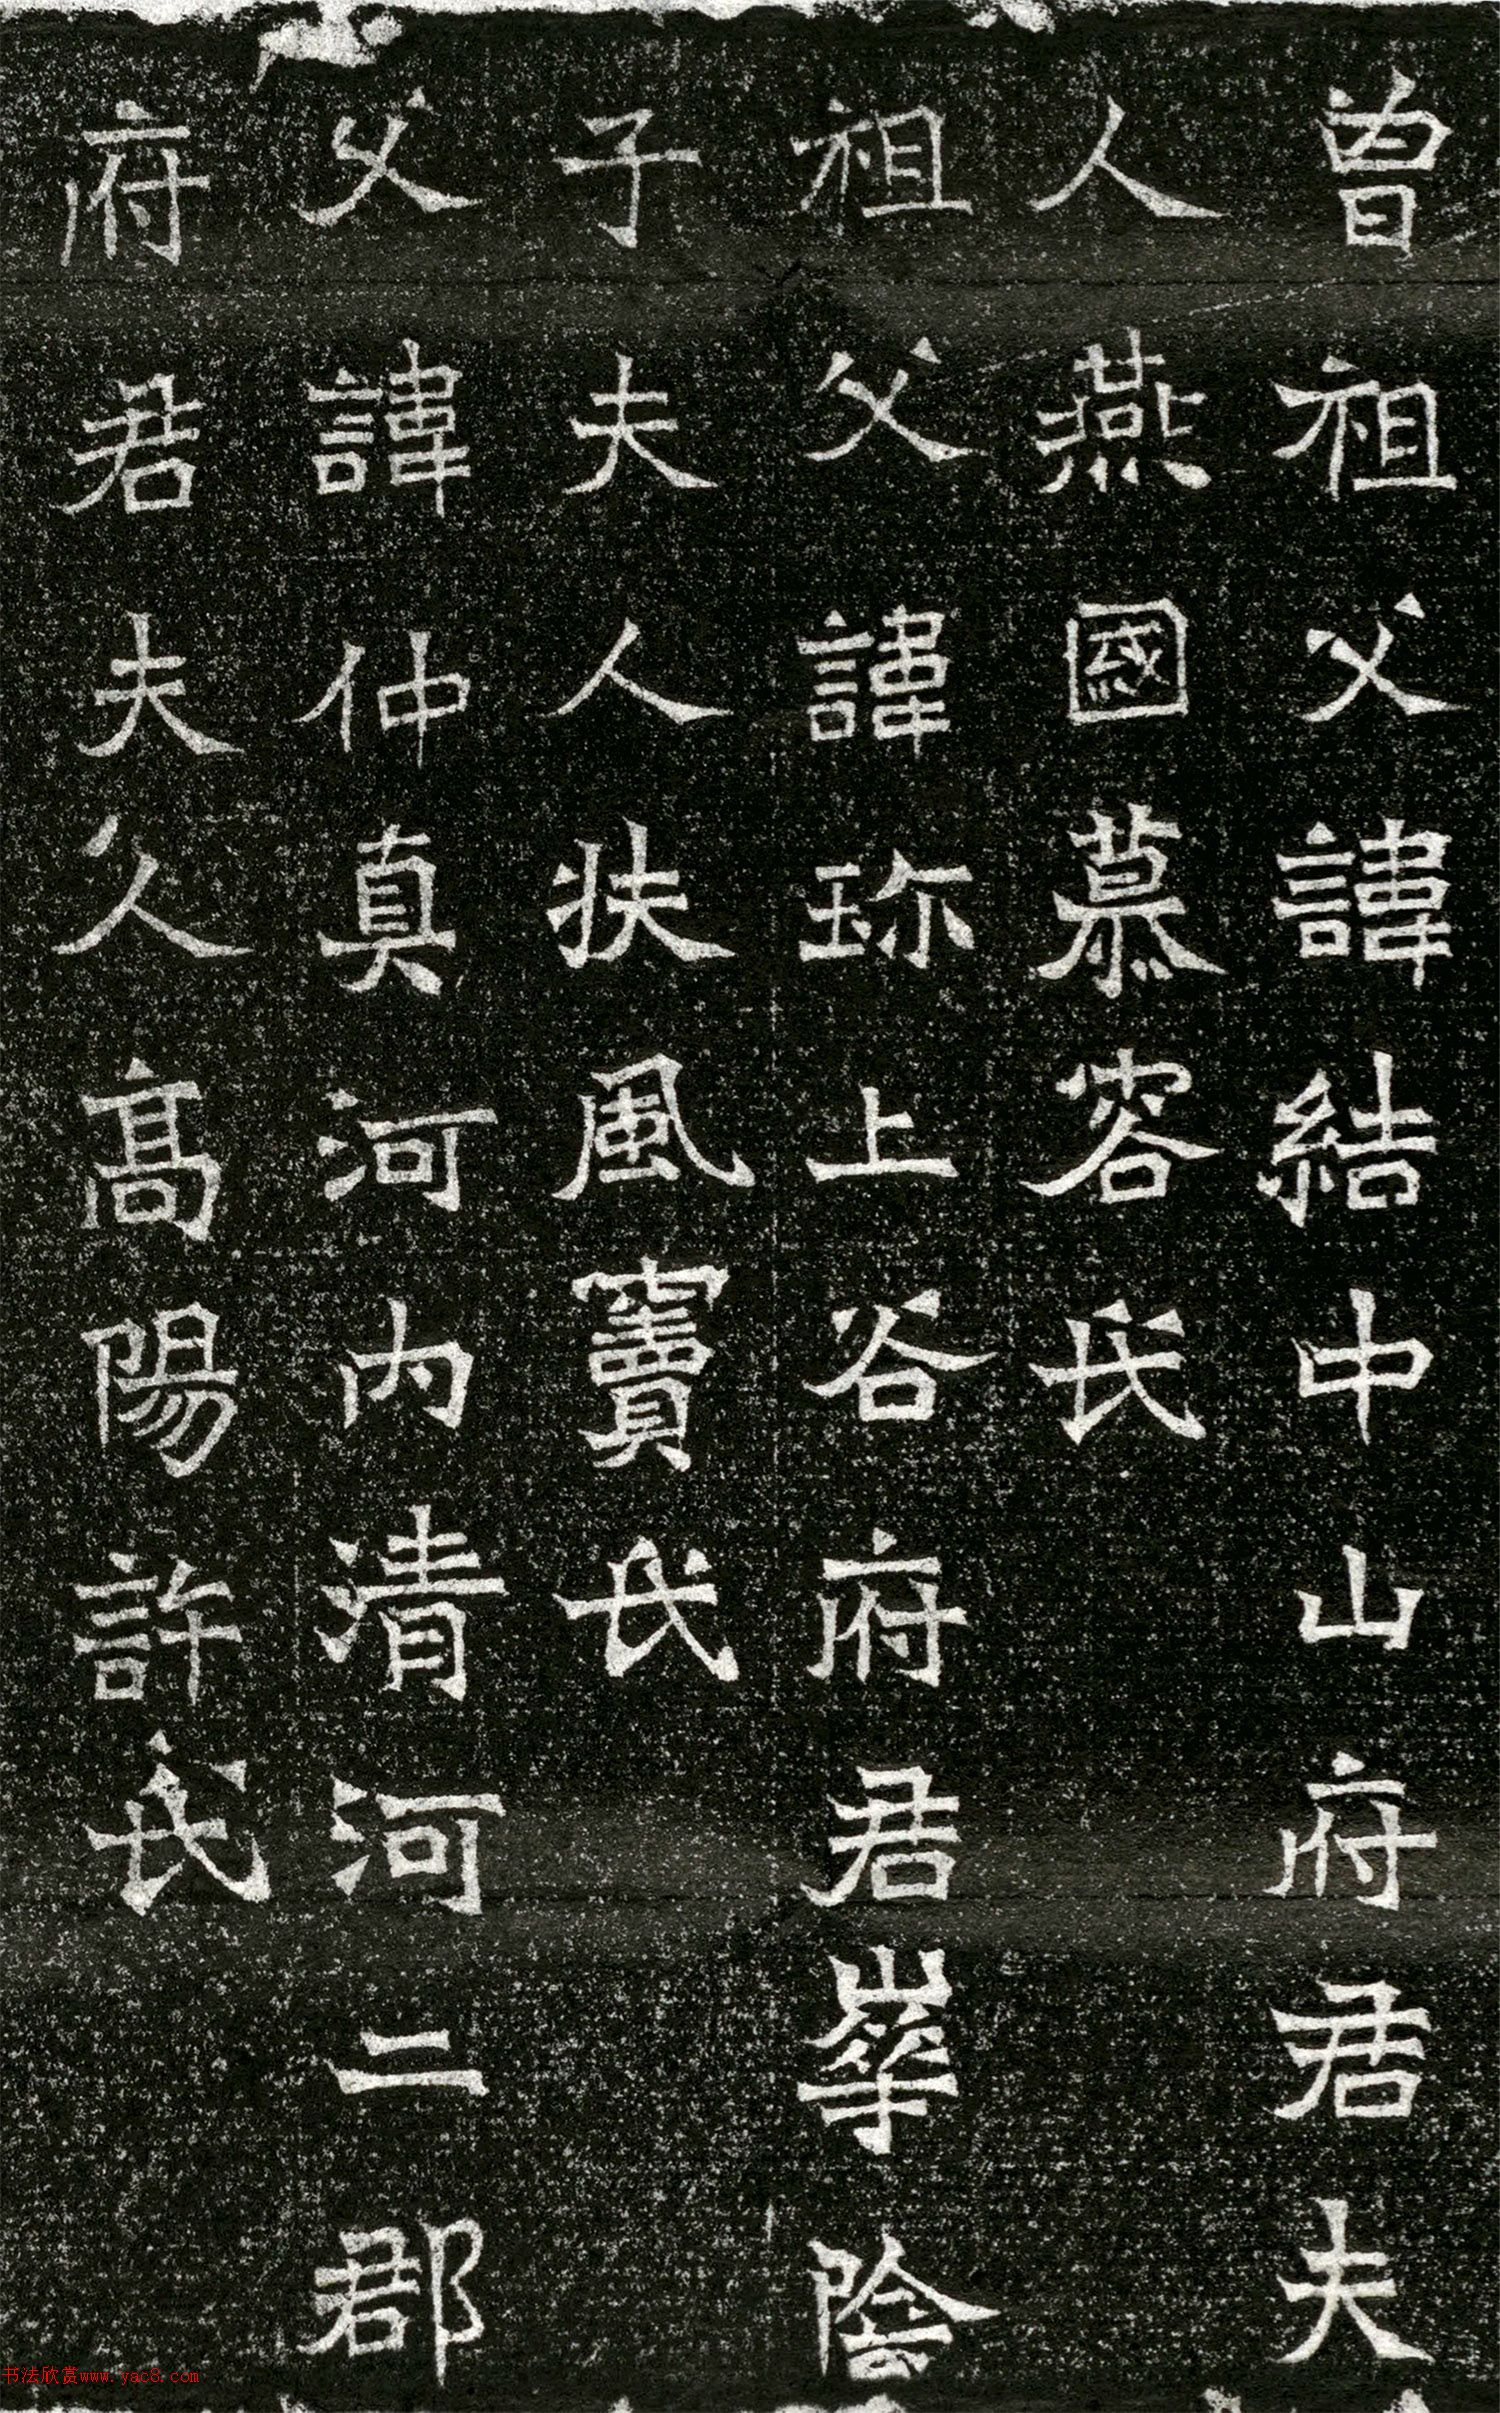 曾祖父諱結中山府君夫
人燕國慕容氏
祖父諱珎上谷府君華陰
子夫人扶風竇氏
父諱仲真河内清河二郡
府君夫人高陽許氏
书法欣赏www.yac8.com